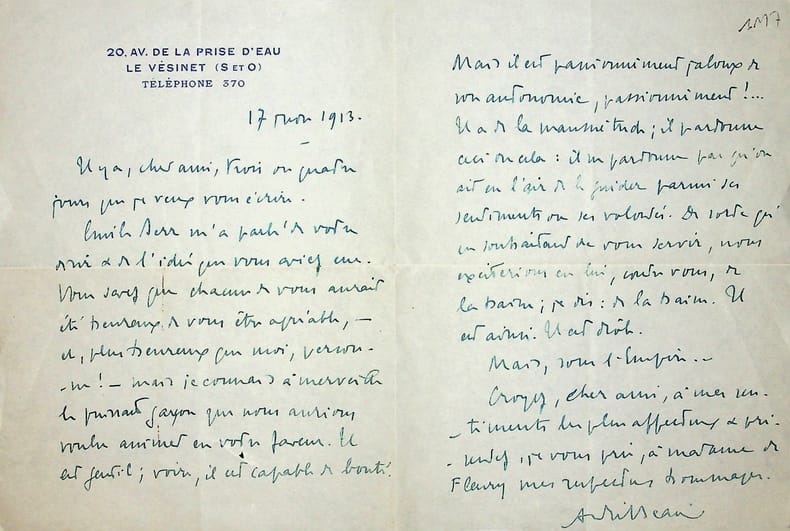 20, AV. DE LA PRISE D'EAU
LE VÉSINET (S ET O)
TÉLÉPHONE 370
17 nov 1913.
Il y a, cher ami, trois ou quatre
jours que je veux vous écrire.
Emile Berr m'a parlé de votre
désir & de l'idée que vous aviez eue.
Vous savez que chacun de nous aurait
été heureux de vous être agréable, –
et, plus heureux que moi, person-
-ne ! – mais je connais à merveille
le puissant garçon que nous aurions
voulu animer en votre faveur. Il
est gentil ; voire, il est capable de bonté.
Mais il est passionnément jaloux de
son autonomie, passionnément !...
Il a de la mansuétude ; il pardonne
ceci ou cela : il ne pardonne pas qu'on
ait eu l'air de le guider parmi ses
sentiments ou ses volontés. De sorte qu'
en souhaitant de vous servir, nous
exciterions en lui, contre vous, de
la haine ; je dis : de la haine. Il
est ainsi. Il est drôle.
Mais, sous l'Empire...
Croyez, cher ami, à mes sen-
-timents les plus affectueux & pré-
-sentez, je vous prie, à madame de
Fleury mes respectueux hommages.
André Beaunier